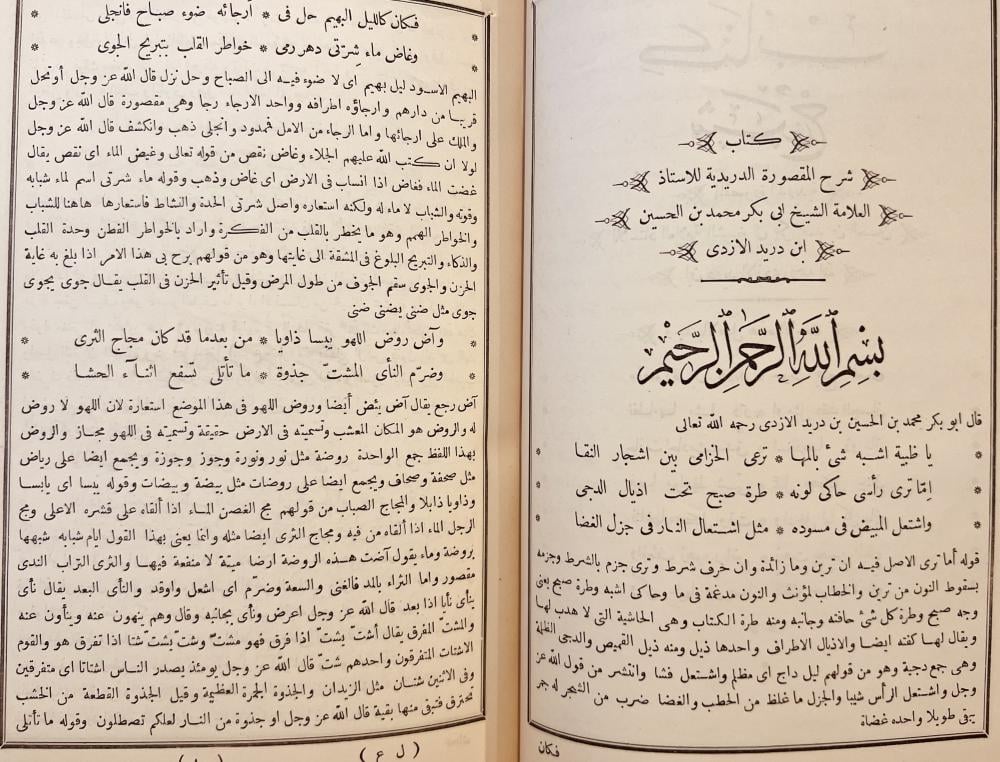 كتاب
شرح المقصورة الدريدية للاستاذ
العلامة الشيخ ابى بكر محمد بن الحسين
ابن دريد الازدى
بسم الله الرحمن الرحيم
قال ابو بكر محمد بن الحسين بن دريد الازدى رحمه الله تعالى
يا ظبية اشبه شئ بالمها * ترعى الخزامى بين اشجار النقا *
إمّا ترى رأسى حاكى لونه * طرة صبح تحت اذيال الدجى *
واشتعل المبيض فى مسوده * مثل اشتعال النار فى جزل الغضا *
قوله أما ترى الاصل فيه ان ترين وما زائدة وان حرف شرط وترى جزم بالشرط وجزمه
بسقوط النون من ترين والخطاب لمؤنث والنون مدغمة فى ما وحاكى اشبه وطرة صبح يعنى
وجه صبح وطرة كل شئ حافته وجانبه ومنه طرة الكتاب وهى الحاشية التى لا هدب لها
ويقال لها كفته ايضا والاذيال الاطراف واحدها ذيل ومنه ذيل القميص والدجى الظلمة
وهى جمع دجية وهو من قولهم ليل داج اى مظلم واشتعل فشا وانتشر من قول الله عز
وجل واشتعل الرأس شيبا والجزل ما غلظ من الحطب والغضا ضرب من الشجر له جمر
يبقى طويلا واحده غضاة
فكان
فكان كالليل البهيم حل فى * ارجائه ضوء صباح فانجلى *
وغاض ماء شِرتى دهر رمى * خواطر القلب بتبريح الجوى *
البهيم الاسود ليل بهيم اى لا ضوء فيه الى الصباح وحل نزل قال الله عز وجل أو تحل
قريبا من دارهم وارجاؤه اطرافه وواحد الارجاء رجا وهى مقصورة قال الله عز وجل
والملك على ارجائها واما الرجاء من الامل فممدود وانجلى ذهب وانكشف قال الله عز وجل
لولا ان كتب الله عليهم الجلاء وغاض نقص من قوله تعالى وغيض الماء اى نقص يقال
غضت الماء فغاض اذا انساب فى الارض اى غاض وذهب وقوله ماء شرتى اسم لماء شبابه
وقوته والشباب لا ماء له ولكنه استعاره واصل شرتى الحدة والنشاط فاستعارها هاهنا للشباب
والخواطر الهمم وهو ما يخطر بالقلب من الفكرة واراد بالخواطر الفطن وحدة القلب
والذكاء والتبريح البلوغ فى المشقة الى غايتها وهو من قولهم برح بى هذا الامر اذا بلغ به غاية
الحزن والجوى سقم الجوف من طول المرض وقيل تأثير الحزن فى القلب يقال جوى يجوى
جوى مثل ضنى يضنى ضنى
* وآض روض اللهو يبسا ذاويا * من بعدما قد كان مجاج الثرى *
* وضرّم النأى المشتّ جذوة * ما تأتلى تسفع اثناء الحشا *
آض رجع يقال آض يئض أيضا وروض اللهو فى هذا الموضع استعارة لان اللهو لا روض
له والروض هو المكان المعشب وتسميته فى الارض حقيقة وتسميته فى اللهو مجاز والروض
بهذا اللفظ جمع الواحدة روضة مثل نور ونورة وجوز وجوزة ويجمع ايضا على رياض
مثل صحفة وصحاف ويجمع ايضا على روضات مثل بيضة وبيضات وقوله يبسا اى يابسا
وذاويا ذابلا والمجاج الصباب من قولهم مج الغصن الماء اذا ألقاه على قشره الاعلى ومج
الرجل الماء اذا ألقاه من فيه ومجاج الثرى ايضا مثله وانما يعنى بهذا القول ايام شبابه شبهها
بروضة وماء يقول آضت هذه الروضة ارضا ميتة لا منفعة فيها والثرى التراب الندى
مقصور واما الثراء بالمد فالغنى والسعة وضرّم اى اشعل واوقد والنأى البعد يقال نأى
ينأى نأيا اذا بعد قال الله عز وجل اعرض ونأى بجانبه وقال وهم ينهون عنه وينأون عنه
والمشتّ المفرق يقال أشتّ يشتّ اذا فرق فهو مشتّ وشتّ يشتّ شتا اذا تفرق هو والقوم
الاشتات المتفرقون واحدهم شتّ قال الله عز وجل يومئذ يصدر الناس اشتاتا اى متفرقين
وفى الاثنين شتان مثل الزيدان والجذوة الجمرة العظيمة وقيل الجذوة القطعة من الخشب
تحترق فتبقى منها بقية قال الله عز وجل او جذوة من النار لعلكم تصطلون وقوله ما تأتلى
( ل ع )